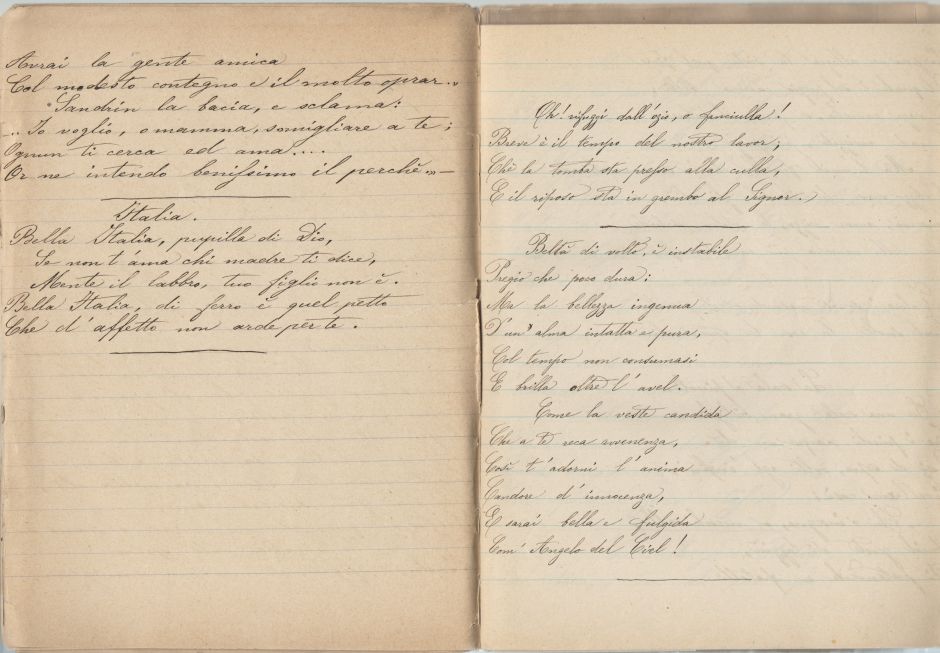 Avrai la gente amica
Col modesto contegno e il molto oprar..„
"Sandrin la bacia, e sclama:
... Io voglio, o mamma, somigliare a te;
Ognun ti cerca ed ama....
Or ne intendo benissimo il perchè..„—
Italia.
Bella Italia, pupilla di Dio,
Se non t'ama chi madre ti dice,
Mente il labbro, tuo figlio non è.
Bella Italia, di ferro è quel petto
Che d'affetto non arde per te.
Oh! rifuggi dall'ozio, o fanciulla!
Breve è il tempo del nostro lavor,
Chè la tomba sta presso alla culla,
E il riposo sta in grembo al Signor.
Beltà di volto, è instabile
Pregio che poco dura:
Ma la bellezza ingenua
D'un'alma intatta e pura,
Col tempo non consumasi
E brilla oltre l'avel.
Come la veste candida
Che a te reca avvenenza,
Così t'adorni l'anima
Candore d'innocenza,
E sarai bella e fulgida
Com'Angelo del Ciel!